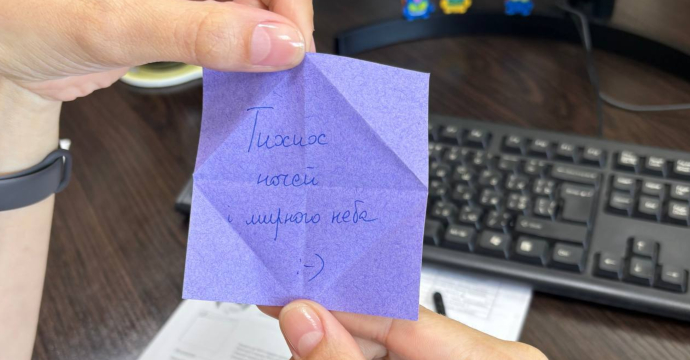 Тихих
ночей
и мирного неба
:-)